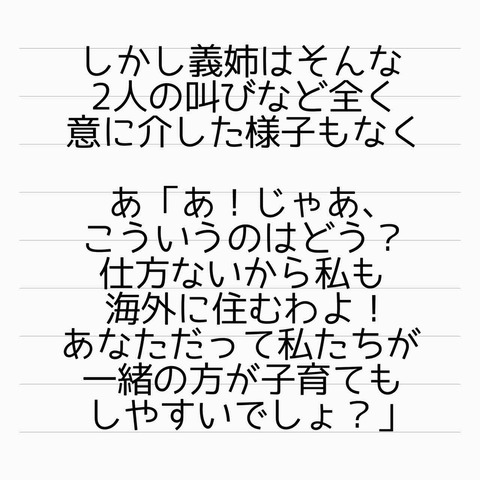 しかし義姉はそんな
2人の叫びなど全く
意に介した様子もなく
あ「あ！じゃあ、
こういうのはどう？
仕方ないから私も
海外に住むわよ！
あなただって私たちが
一緒の方が子育ても
しやすいでしょ？」